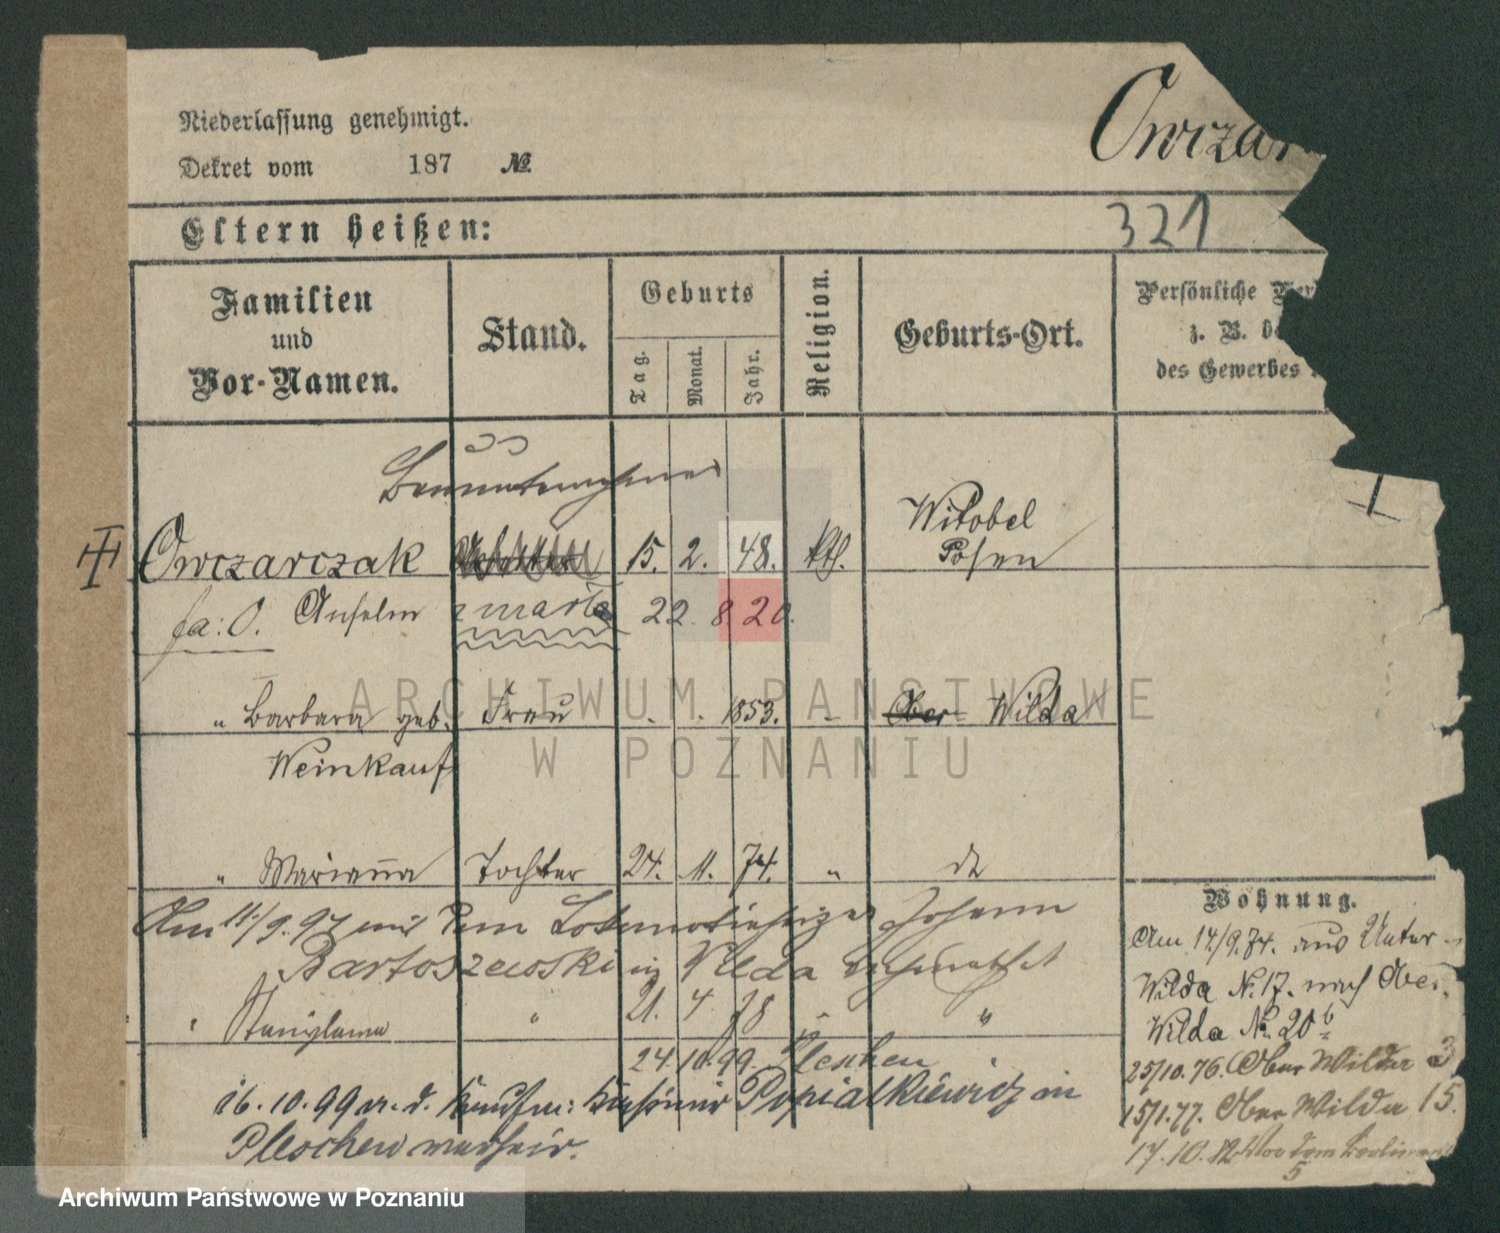 Niederlassung genehmigt.
Dekret vom 187 №
Owczar
321
Eltern heißen:
Familien und Vor-Namen.
Stand.
Geburts
Tag. Monat. Jahr.
Religion.
Geburts-Ort.
Persönliche
z. B.
des Gewerbes
Owczarczak 15. 2. 48. kth. Witobel Posen
fa: O. Anselm zmarła 22. 8. 20.
" Barbara geb. Frau 1853. Ober Wilda
Weinkauf
" Marianna Tochter 24. 11. 74. " do
Am 11./9. 97 mit dem Johann
Bartoszewski in Wilda verheirathet
" Stanislawa " 21. 4. 78 " "
24.10.99. Pleschen
16.10.99 a. d. Kaufm: Kasimir Popialkiewicz in
Pleschen verheir.
Wohnung.
Am 14./9.74. aus Unter-
Wilda № 17. nach Ober-
Wilda № 20b
25/10.76. Ober Wilda 3
15/1.77. Ober Wilda 15.
17.10.12 Vor dem
5
ARCHIWUM PAŃSTWOWE
W POZNANIU
Archiwum Państwowe w Poznaniu